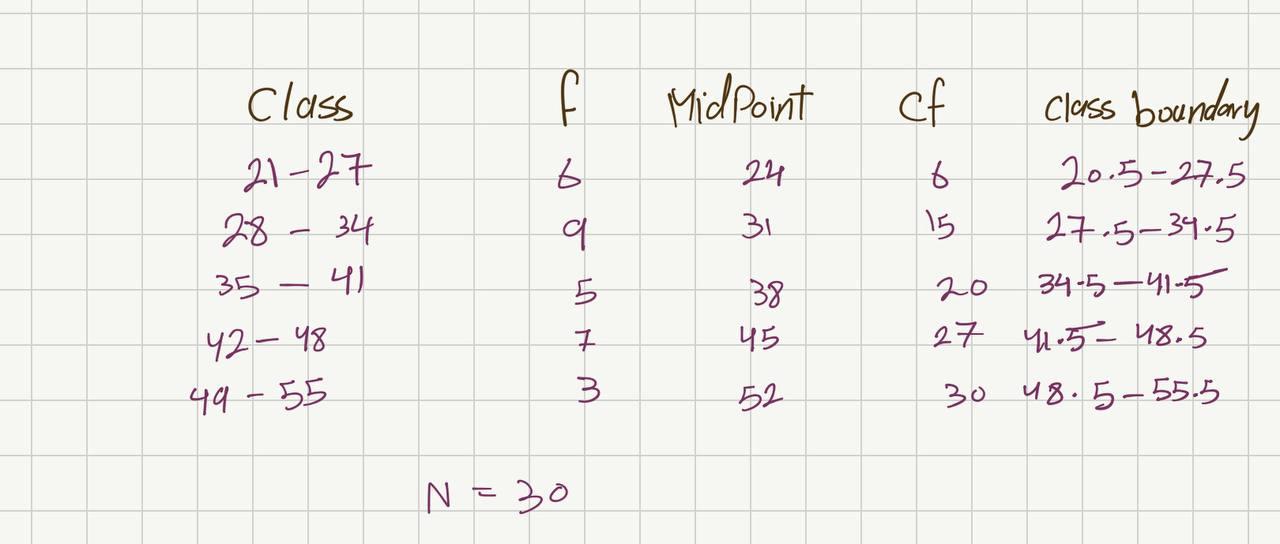 Class f MidPoint cf class boundary
21-27 6 24 6 20.5-27.5
28 - 34 9 31 15 27.5-34.5
35 - 41 5 38 20 34.5-41.5
42 - 48 7 45 27 41.5- 48.5
49 - 55 3 52 30 48.5-55.5
N = 30